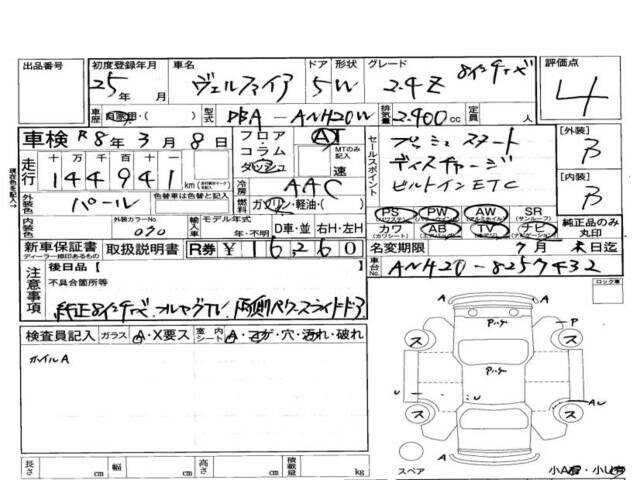 出品番号
初度登録年月 25年 月
車名 ヴェルファイア
ドア 5 形状 W
グレード 2.4Z 8インチナビ
評価点 4
車歴 自家用・( )
型式 DBA-ANH20W
排気量 2.400 cc
定員 人
車検 R8年 3月 8日
フロア コラム ダッシュ
AT MTのみ記入 速
セールスポイント
プッシュスタート
ディスチャージ
ビルトインETC
[外装] B
[内装] B
走行 十万千百十一 144941 km
冷房 AAC
燃料 ガソリン・軽油・( )
外装色 パール
色替車は色替と記入
内装色
外装カラーNo. 070
輸入車 モデル年式 年・不明
D車・並 右H・左H
PS PW AW SR (サンルーフ)
カワ (カワシート) AB TV ナビ
純正品のみ丸印
新車保証書 ディーラー捺印あるもの
取扱説明書
R券 ¥ 16,260
名変期限 7月 末日迄
車台No. ANH20-8257432
注意事項
後日品 [ ]
不具合箇所等
純正8インチナビ、フルセグTV、両側パワースライドドア
ロック車
検査員記入 ガラス A・X要ス 室内シート A・コゲ・穴・汚れ・破れ
ホイルA
A
アハゲ
P
ス ス
アハゲ
U U AU
ス ス
A
スペア
小A・小U
長さ cm 幅 cm 高さ cm 積載量 kg